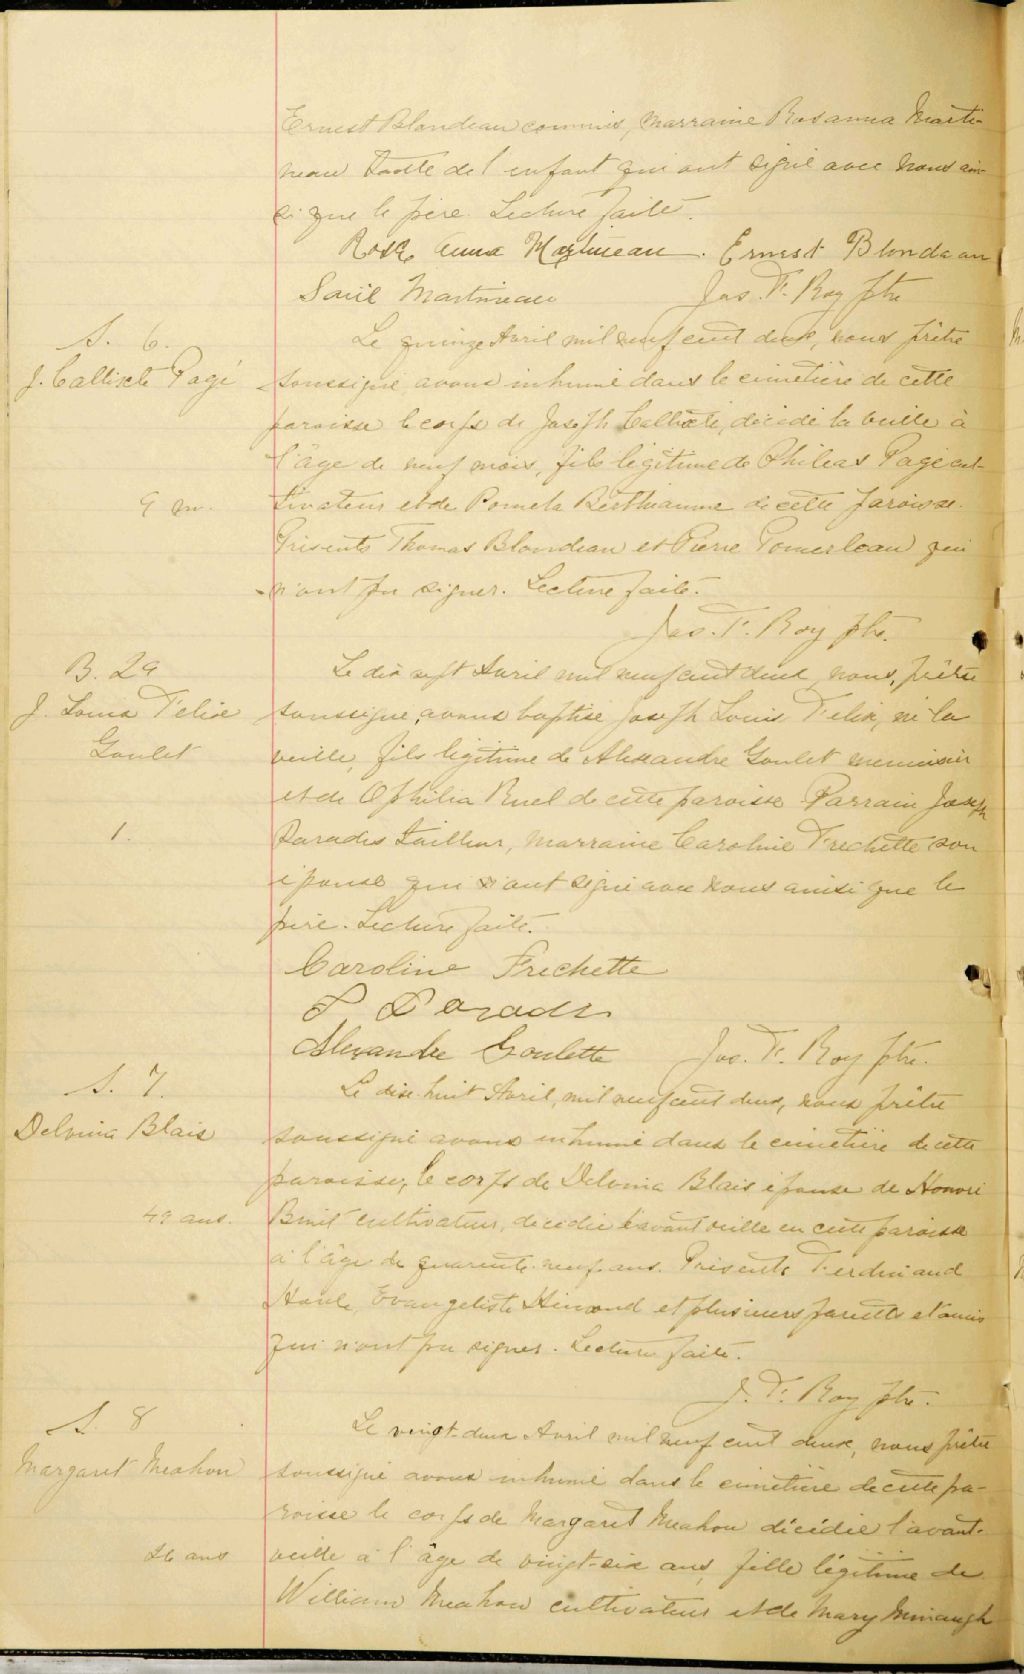 Ernest Blondeau commis, Marraine Rosanna Marti-
neau tante de l'enfant qui ont signé avec nous ain-
si que le père. Lecture faite.
Rose Anna Martineau. Ernest Blondeau
Saül Martineau Jos. F. Roy ptre
S. 6.
J. Callixte Pagé
9 m.
Le quinze Avril mil neuf cent deux, nous prêtre
soussigné avons inhumé dans le cimetière de cette
paroisse le corps de Joseph Callixte, décédé la veille à
l'âge de neuf mois, fils légitime de Philéas Pagé cul-
tivateur et de Pomela Berthiaume de cette paroisse.
Présents Thomas Blondeau et Pierre Pomerleau qui
n'ont pu signer. Lecture faite.
Jos. F. Roy ptre.
B. 29
J. Louis Felix
Goulet
1.
Le dix sept Avril mil neuf cent deux, nous, prêtre
soussigné, avons baptisé Joseph Louis Felix, né la
veille, fils légitime de Alexandre Goulet menuisier
et de Ophilia Ruel de cette paroisse Parrain Joseph
Paradis tailleur, marraine Caroline Frechette son
épouse qui ont signé avec nous ainsi que le
père. Lecture faite.
Caroline Frechette
J Paradis
Alexandre Goulette Jos. F. Roy ptre.
S. 7.
Delvina Blais
49 ans.
Le dix-huit Avril, mil neuf cent deux, nous prêtre
soussigné avons inhumé dans le cimetière de cette
paroisse, le corps de Delvina Blais épouse de Honoré
Binet cultivateur, décédée l'avant veille en cette paroisse
à l'âge de quarante-neuf ans. Présents Ferdinand
Houle, Evangeliste Simond et plusieurs parents et amis
qui n'ont pu signer. Lecture faite.
J. F. Roy ptre.
S. 8
Margaret Meahon
26 ans
Le vingt-deux Avril mil neuf cent deux, nous prêtre
soussigné avons inhumé dans le cimetière de cette pa-
roisse le corps de Margaret Meahon décédée l'avant-
veille à l'âge de vingt-six ans, fille légitime de
William Meahon cultivateur et de Mary Minaugh